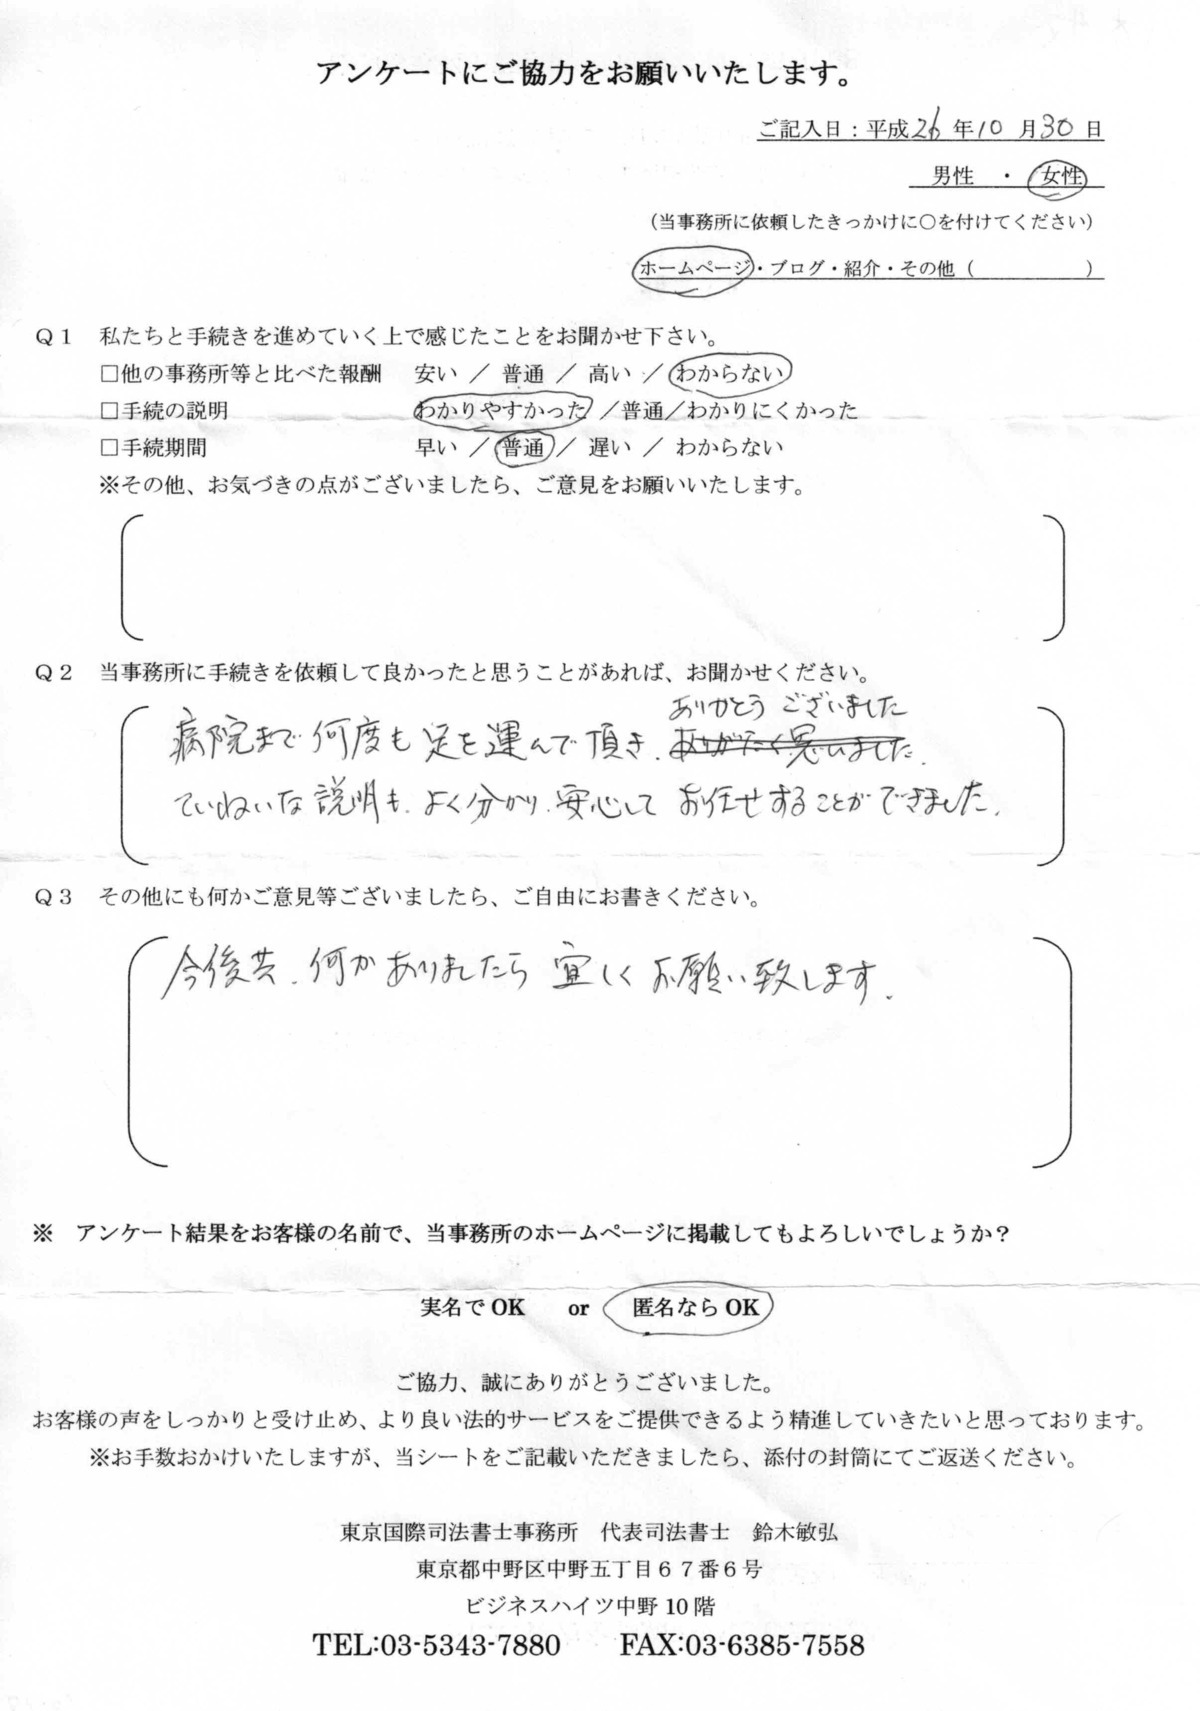 アンケートにご協力をお願いいたします。
ご記入日：平成26年10月30日
男性　・　女性
（当事務所に依頼したきっかけに○を付けてください）
ホームページ・ブログ・紹介・その他（　　　　　　）
Ｑ１　私たちと手続きを進めていく上で感じたことをお聞かせ下さい。
□他の事務所等と比べた報酬　安い ／ 普通 ／ 高い ／ わからない
□手続の説明　わかりやすかった ／普通／わかりにくかった
□手続期間　早い ／ 普通 ／ 遅い ／ わからない
※その他、お気づきの点がございましたら、ご意見をお願いいたします。
Ｑ２　当事務所に手続きを依頼して良かったと思うことがあれば、お聞かせください。
ありがとうございました
病院まで何度も足を運んで頂き、ありがたく思いました。
ていねいな説明も、よく分かり、安心してお任せすることができました。
Ｑ３　その他にも何かご意見等ございましたら、ご自由にお書きください。
今後共、何かありましたら宜しくお願い致します。
※　アンケート結果をお客様の名前で、当事務所のホームページに掲載してもよろしいでしょうか？
実名でOK　or　匿名ならOK
ご協力、誠にありがとうございました。
お客様の声をしっかりと受け止め、より良い法的サービスをご提供できるよう精進していきたいと思っております。
※お手数おかけいたしますが、当シートをご記載いただきましたら、添付の封筒にてご返送ください。
東京国際司法書士事務所　代表司法書士　鈴木敏弘
東京都中野区中野五丁目６７番６号
ビジネスハイツ中野10階
TEL:03-5343-7880　FAX:03-6385-7558